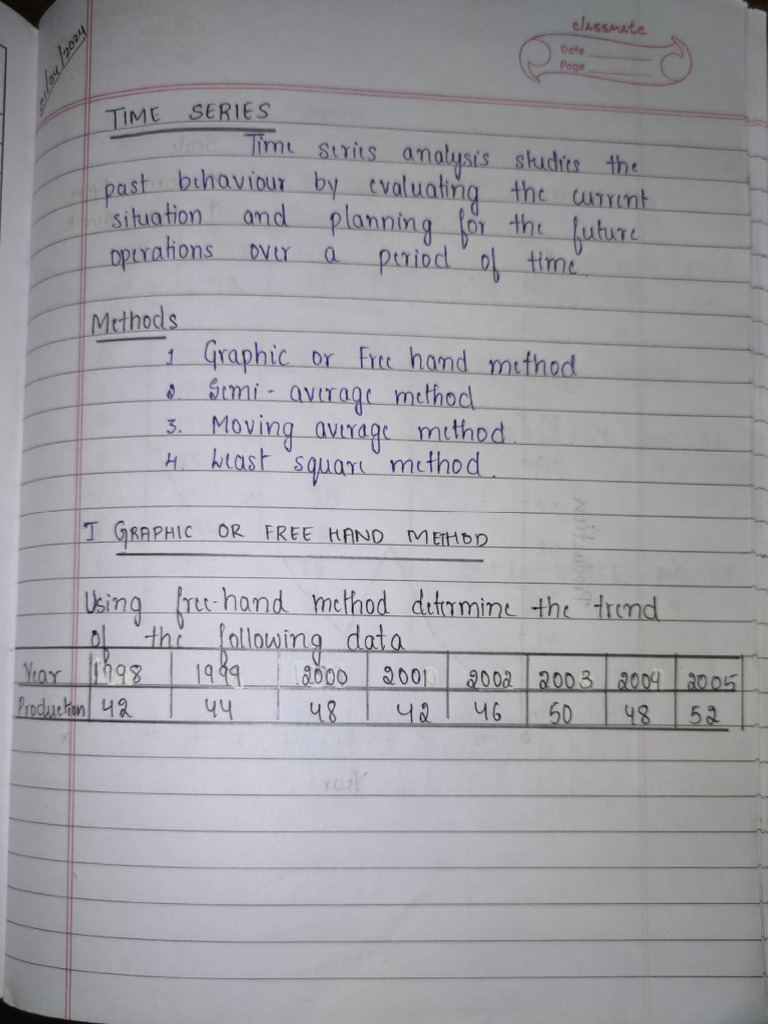 classmate
Date
Page
/04/2024
TIME SERIES
Time series analysis studies the
past behaviour by evaluating the current
situation and planning for the future
operations over a period of time.
Methods
1 Graphic or Free hand method
2. Semi-average method
3. Moving average method.
4. Least square method.
I GRAPHIC OR FREE HAND METHOD
Using free-hand method determine the trend
of the following data
Year 1998 1999 2000 2001 2002 2003 2004 2005
Production 42 44 48 42 46 50 48 52